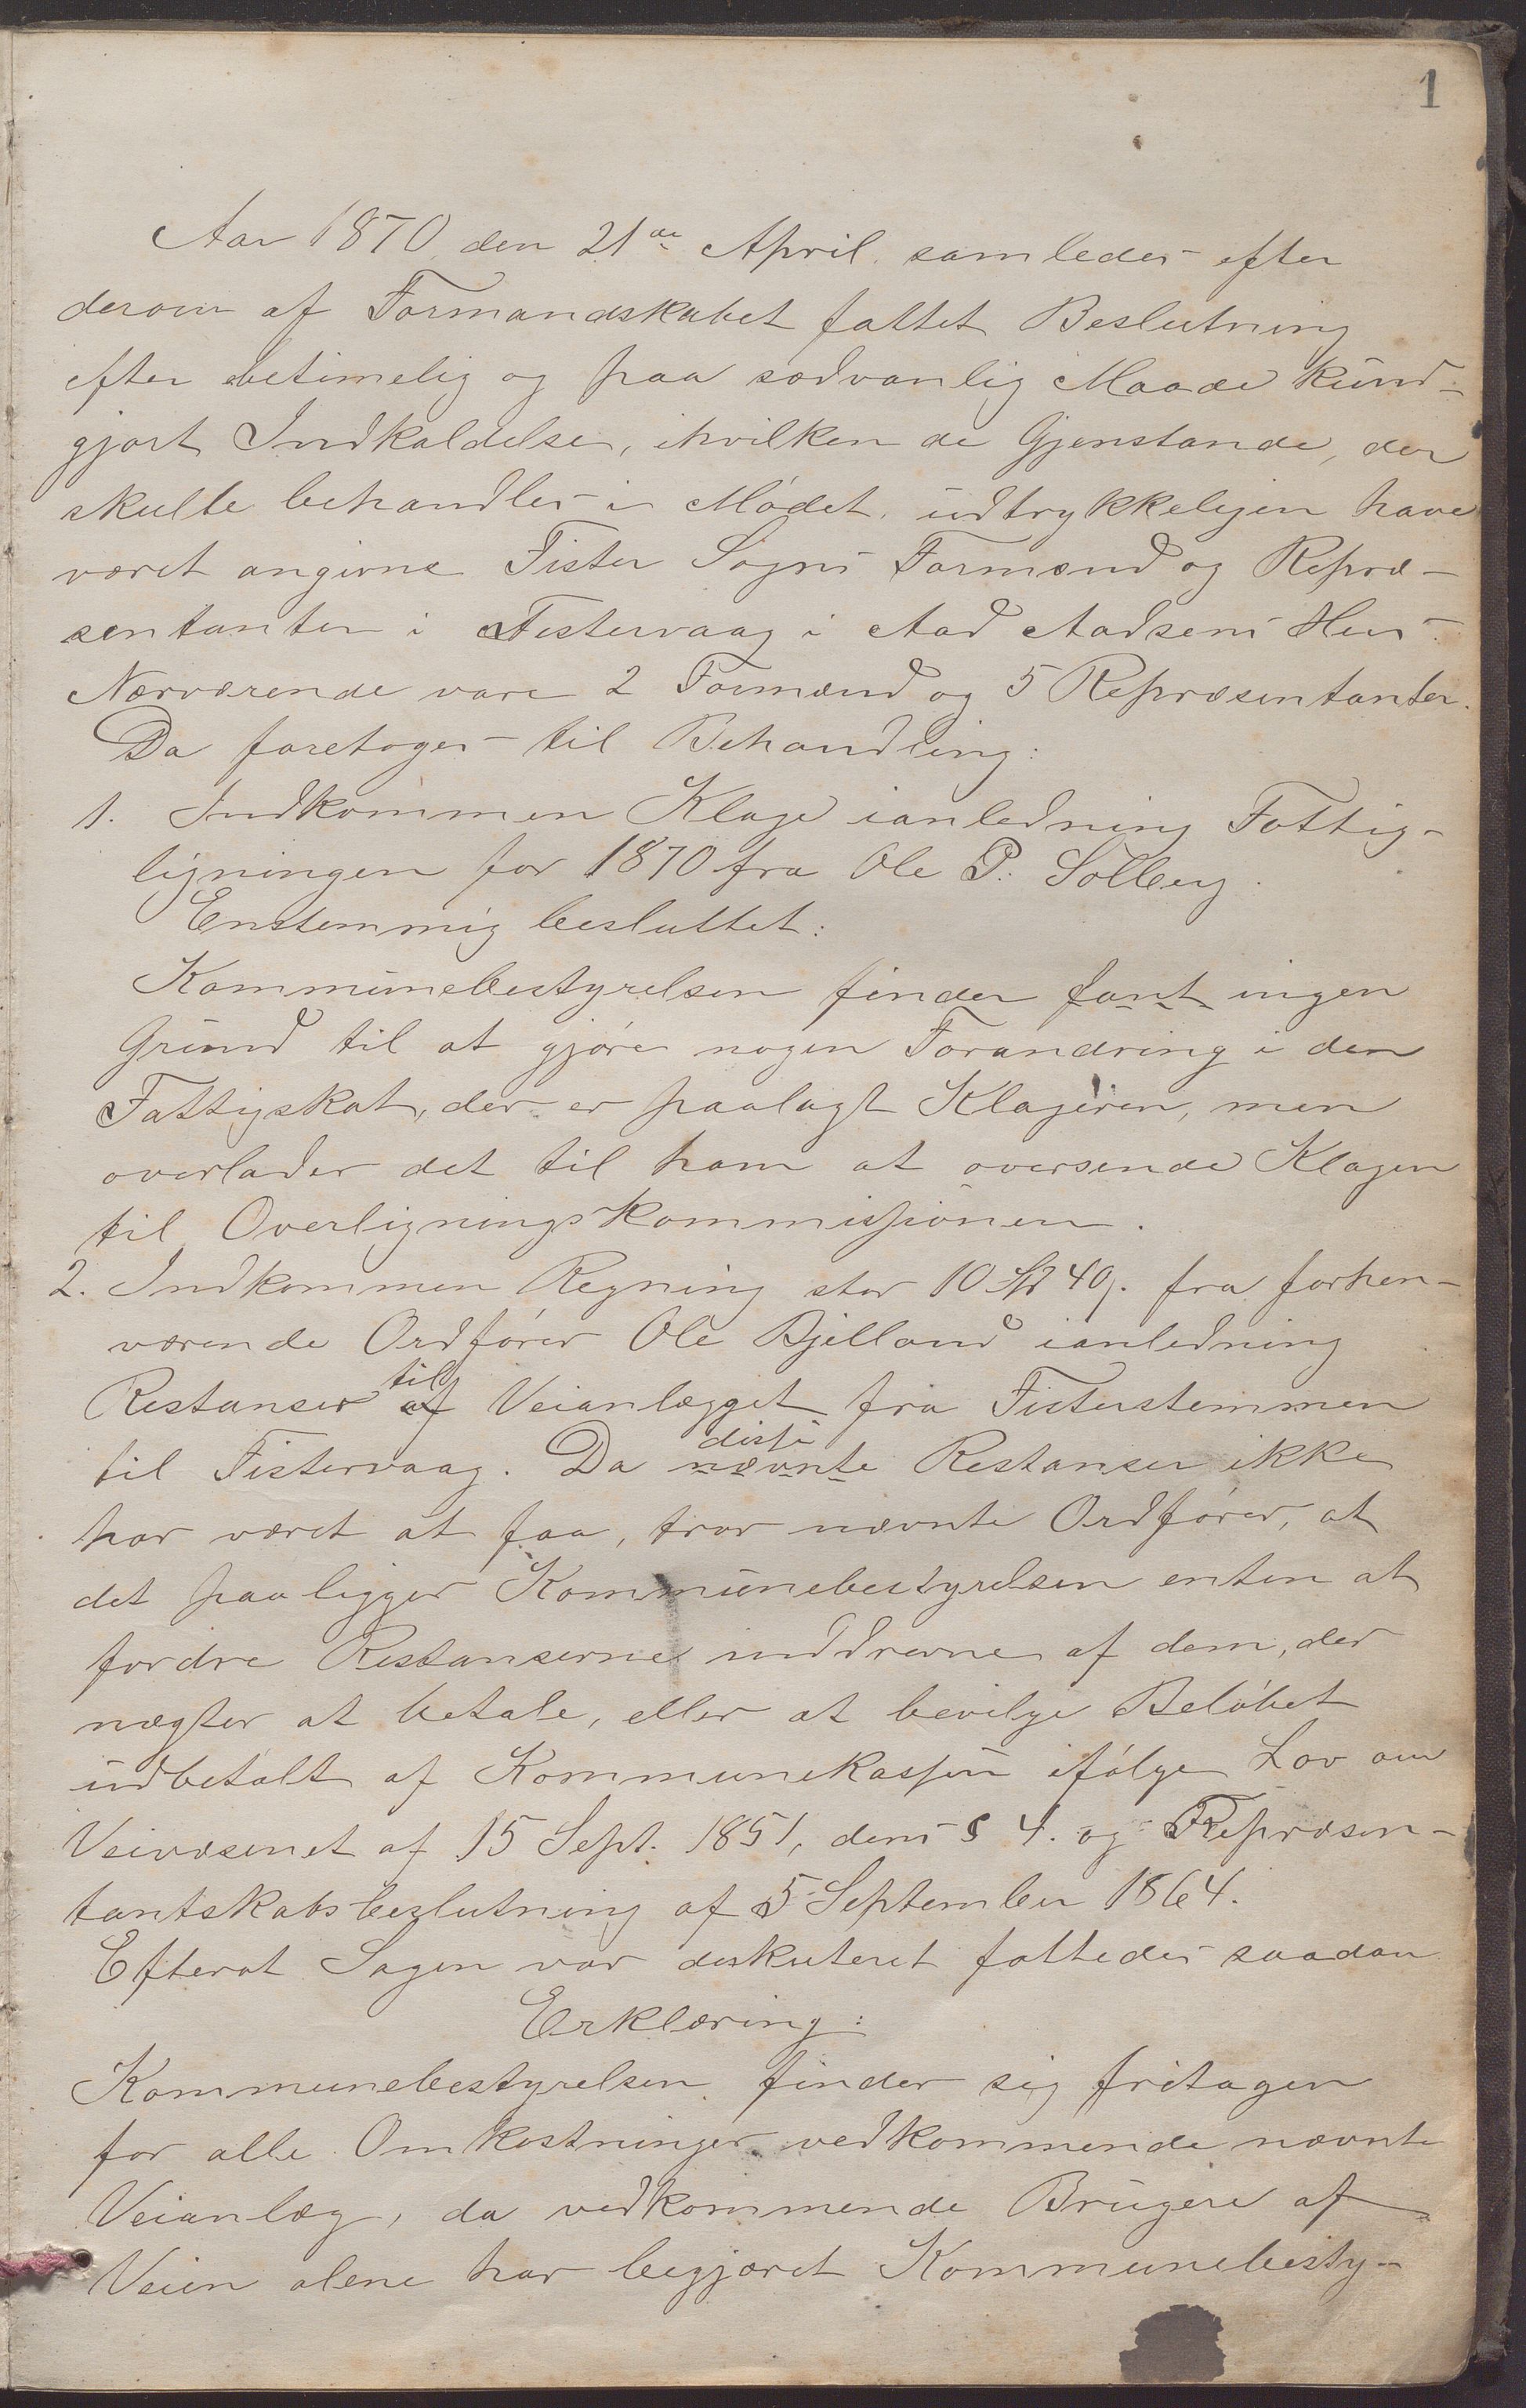 1
Aar 1870 den 21de April samledes efter
derom af Formandskabet fattet Beslutning
efter betimelig og paa sædvanlig Maade kund-
gjort Indkaldelse, ihvilken de Gjenstande, der
skulle behandles i Mødet udtrykkeligen have
været angivne Fister Sogns Formænd og Repræ-
sentanter i Fistervaag i Aad Aadsens Hus.
Nærværende vare 2 Formænd og 5 Repræsentanter.
Da foretoges til Behandling:
1. Indkommen Klage ianledning Fattig-
ligningen for 1870 fra Ole P. Solberg.
Enstemmig besluttet:
Kommunebestyrelsen finder fant ingen
Grund til at gjøre nogen Forandring i den
Fattigskat, der er paalagt Klageren, men
overlader det til ham at oversende Klagen
til Overligningskommissionen.
2. Indkommen Regning stor 10 Spd 40 s. fra forhen-
værende Ordfører Ole Bjelland ianledning
Restanser af til Veianlægget fra Fisterstemmen
til Fistervaag. Da nævnte disse Restanser ikke
har været at faa, tror nævnte Ordfører, at
det paaligger Kommunebestyrelsen enten at
fordre Restanserne inddrevne af dem, der
nægter at betale, eller at bevilge Beløbet
udbetalt af Kommunekassen ifølge Lov om
Veivæsenet af 15 Sept. 1851, dens § 4. og Repræsen-
tantskabsbeslutning af 5 September 1864.
Efterat Sagen var diskuteret fattedes saadan
Erklæring:
Kommunebestyrelsen finder sig fritagen
for alle Omkostninger vedkommende nævnte
Veianlæg, da vedkommende Brugere af
Veien alene har begjæret Kommunebesty-